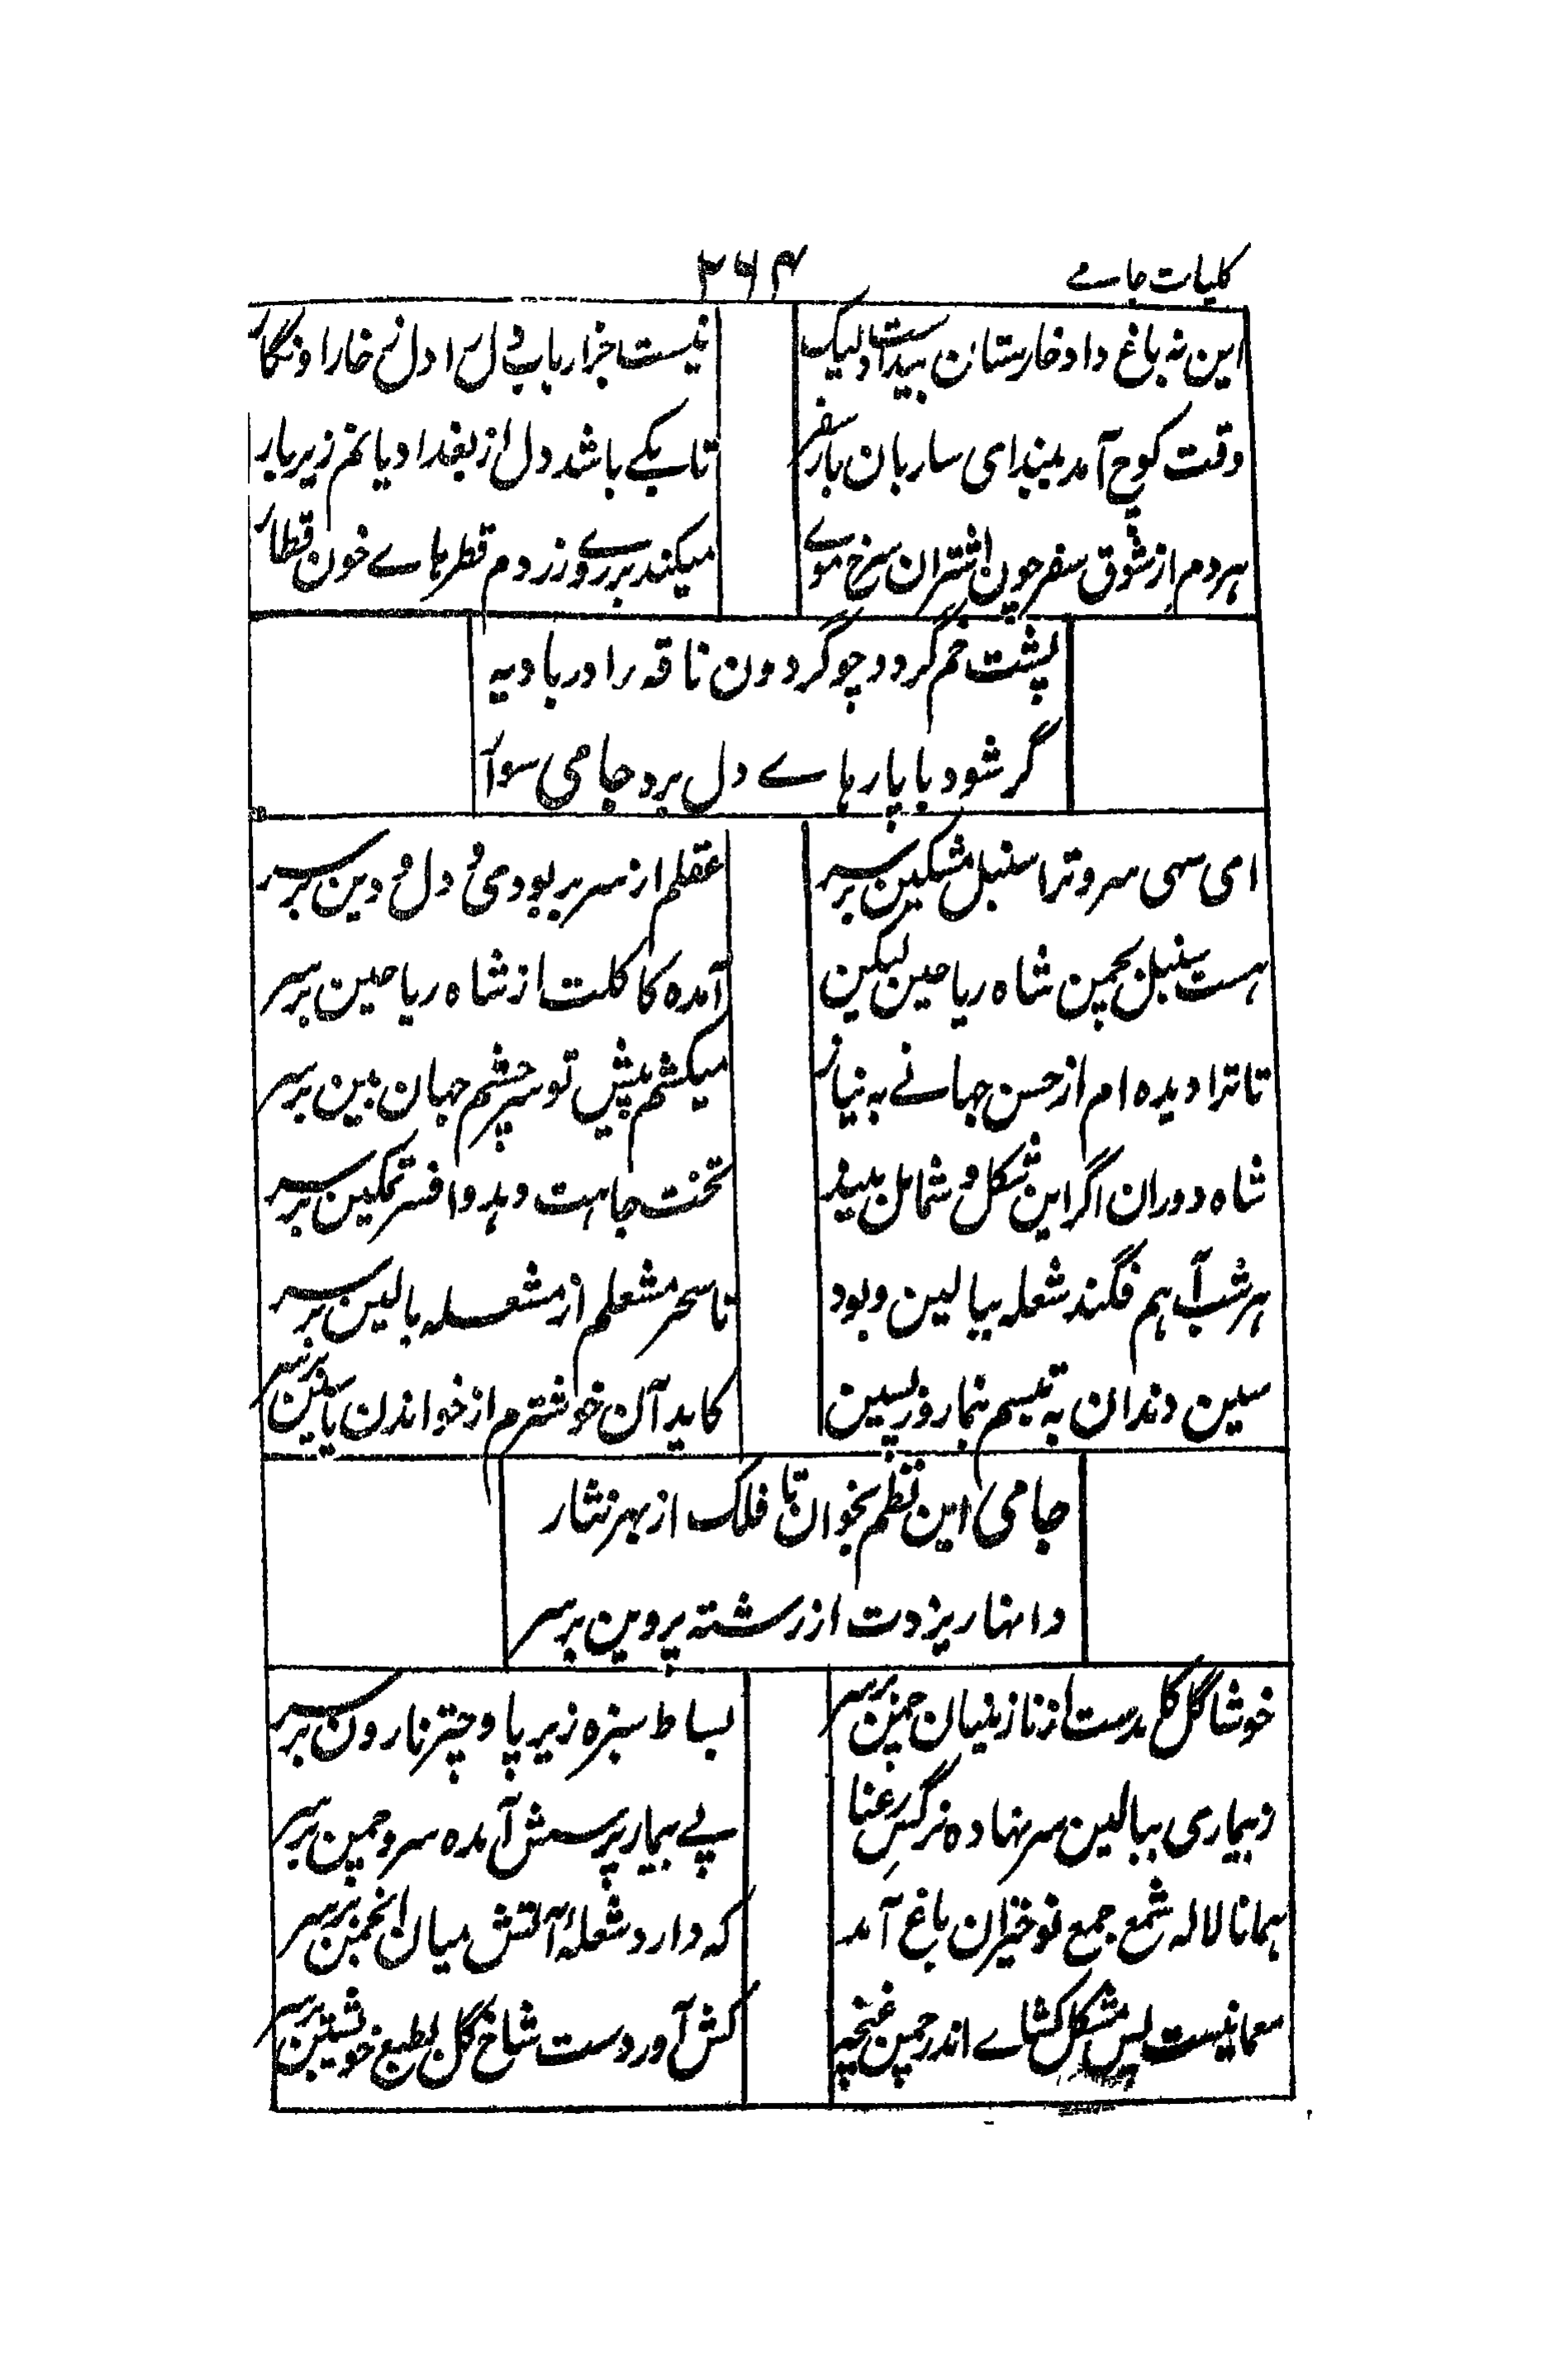 کلیات جامے
۲۶۴
این نه باغ داد و خارستان بیدادست و لیک
نیست جز ارباب دل را دل نے خارا و نگار
وقت کوچ آمد ببند ای ساربان بار سفر
تا بکے باشد دل از بغداد یانم زیر بار
هر دم از شوق سفر چون اشتران سرخ موے
میکند بر روے زردم قطرهاے خون قطار
پشت خم گردد چو گردون ناقه را در بادیه
گر شود با پارهاے دل برو جامی سوار
ای سهی سرو ترا سنبل مشکین بر سر
عقلم از سر بربودی و دل و دین بر سر
هست سنبل بچمن شاه ریاحین لیکن
آمده کاکلت از شاه ریاحین بر سر
تا ترا دیده ام از حسن جهانے به نیاز
میکشم پیش تو سر چشم جهان بین بر سر
شاه دوران اگر این شکل و شمایل بیند
تخت جاهت دهد و افسر تمکین بر سر
هر شب آهم فگند شعله ببالین و بود
تا سحر مشعلم از مشعله بالین بر سر
سین دندان به تبسم بنما روز پسین
کاید آن خوشترم از خواندن یاسین بر سر
جامی این نظم بخوان تا فلک از بهر نثار
دانها ریزدت از رشته پروین بر سر
خوشا گل گل بدست از نازنینان چمن بر سر
بساط سبزه زیر پا و چتر نارون بر سر
ز بیماری ببالین سر نهاده نرگسِ رعنا
پے بیمار پرسش آمده سرو چمن بر سر
همانا لاله شمع جمع نوخیزان باغ آمد
که دارد شعلهٔ آتش میان انجمن بر سر
معمانیست بس مشکل کشاے اندر چمن غنچه
کش آورد دست شاخ گل بطبع خویشتن بر سر